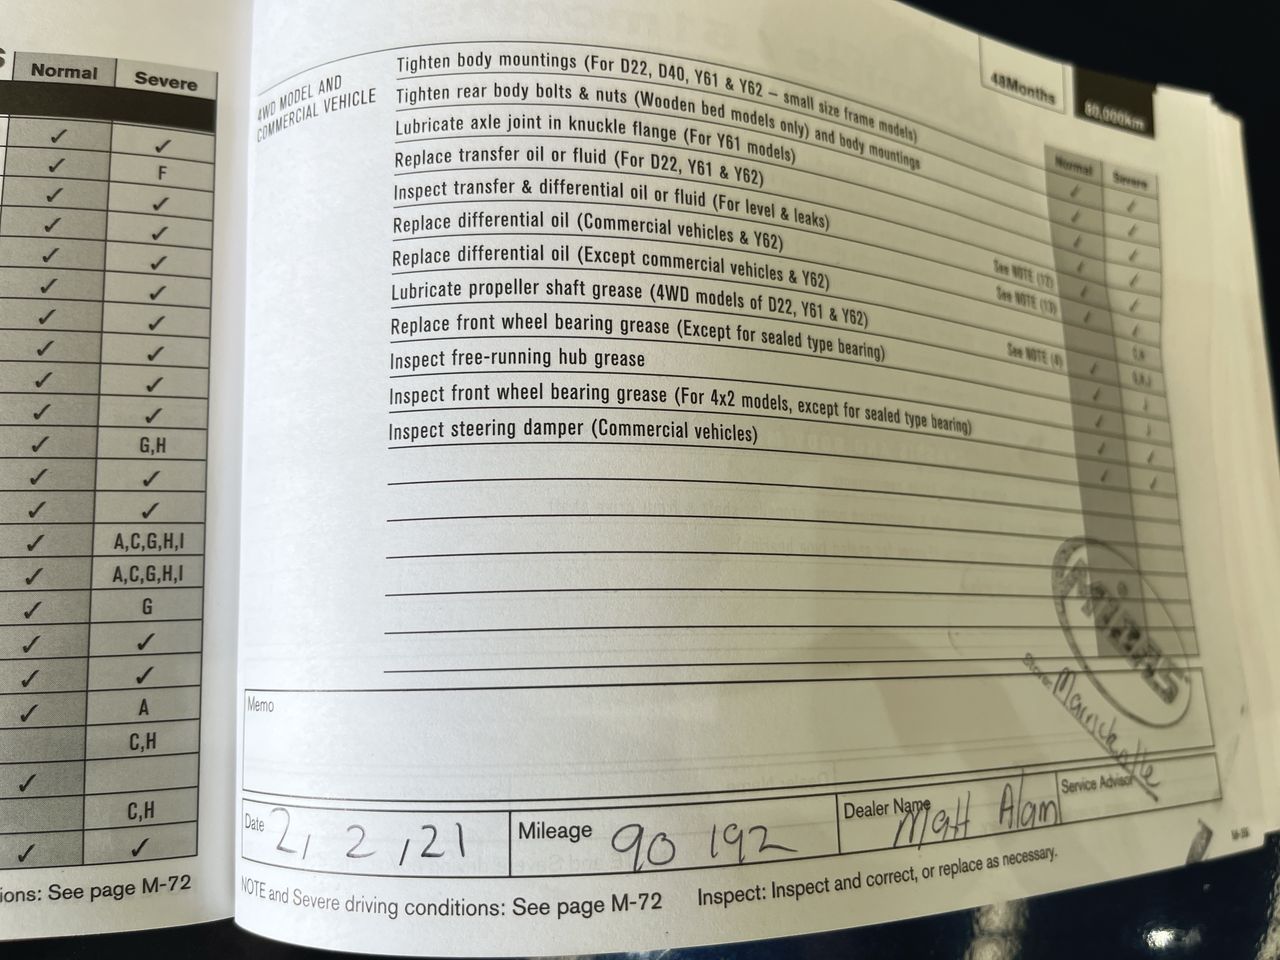 S
Normal Severe
✓ ✓
✓ F
✓ ✓
✓ ✓
✓ ✓
✓ ✓
✓ ✓
✓ ✓
✓ ✓
✓ ✓
✓ G,H
✓ ✓
✓ ✓
✓ A,C,G,H,I
✓ A,C,G,H,I
✓ G
✓ ✓
✓ ✓
✓ A
C,H
✓
C,H
✓ ✓
ions: See page M-72
48Months
80,000km
Normal Severe
4WD MODEL AND
COMMERCIAL VEHICLE
Tighten body mountings (For D22, D40, Y61 & Y62 – small size frame models)
Tighten rear body bolts & nuts (Wooden bed models only) and body mountings
Lubricate axle joint in knuckle flange (For Y61 models)
Replace transfer oil or fluid (For D22, Y61 & Y62)
Inspect transfer & differential oil or fluid (For level & leaks)
Replace differential oil (Commercial vehicles & Y62) See NOTE (12)
Replace differential oil (Except commercial vehicles & Y62) See NOTE (13)
Lubricate propeller shaft grease (4WD models of D22, Y61 & Y62)
Replace front wheel bearing grease (Except for sealed type bearing) See NOTE (4)
Inspect free-running hub grease
Inspect front wheel bearing grease (For 4x2 models, except for sealed type bearing)
Inspect steering damper (Commercial vehicles)
Midas
Store: Marrickville
Memo
Date 2, 2, 21 Mileage 90 192 Dealer Name Matt Alam Service Advisor
NOTE and Severe driving conditions: See page M-72 Inspect: Inspect and correct, or replace as necessary.